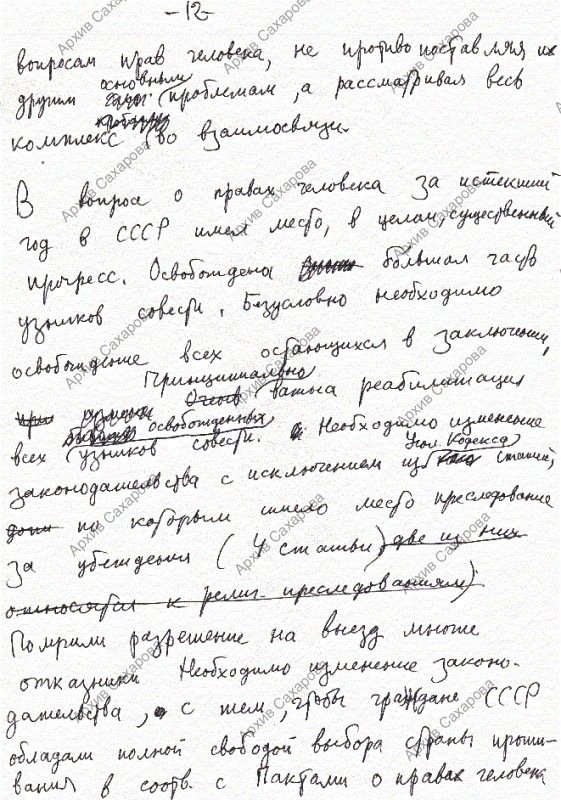 -12-
вопросам прав человека, не противопоставляя их
основными
другим проблемам, а рассматривая весь
комплекс во взаимосвязи.
В вопросе о правах человека за истекший
год в СССР имел место, в целом, существенный
прогресс. Освобождена большая часть
узников совести. Безусловно необходимо
освобождение всех остающихся в заключении,
Принципиально
важна реабилитация
освобожденных
всех узников совести. Необходимо изменение
Угол. Кодекса
законодательства с исключением из статей,
по которым имело место преследование
за убеждения (4 статьи) две из них
относятся к религ. преследованиям)
Получили разрешение на выезд многие
отказники Необходимо изменение законо-
дательства, с тем, чтобы граждане СССР
обладали полной свободой выбора страны прожи-
вания в соотв. с Пактами о правах человека
Архив Сахарова